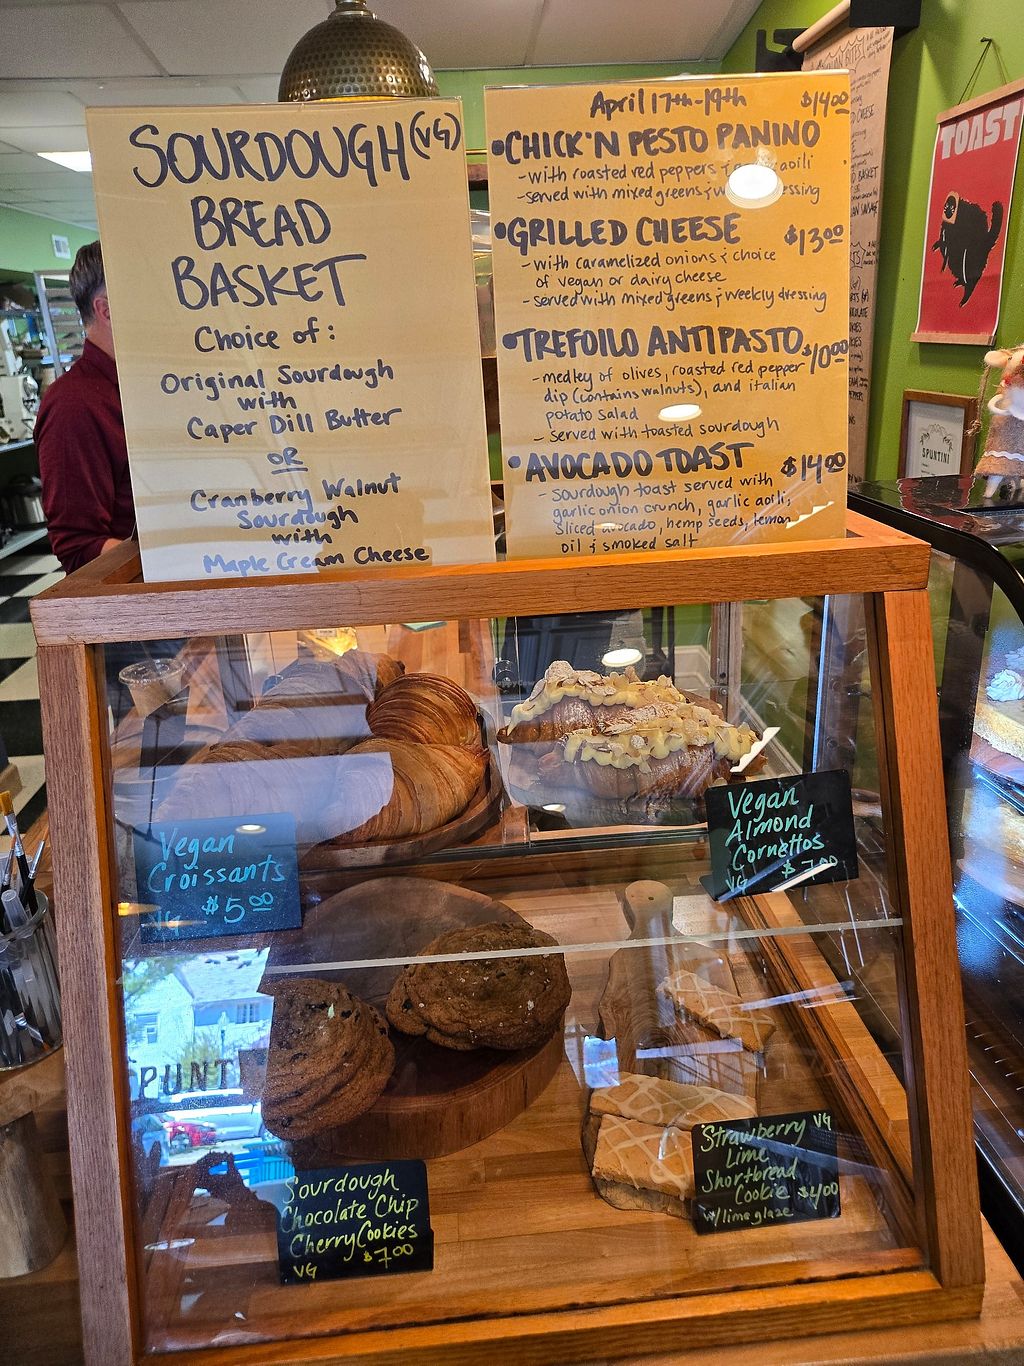 SOURDOUGH (VG)
BREAD
BASKET
Choice of:
Original Sourdough
with
Caper Dill Butter
OR
Cranberry Walnut
Sourdough
with
Maple Cream Cheese
April 17th-19th $14.00
•CHICK'N PESTO PANINO
-with roasted red peppers & aoili
-served with mixed greens &
•GRILLED CHEESE $13.00
-with caramelized onions & choice
of vegan or dairy cheese
-served with mixed greens & weekly dressing
•TREFOILO ANTIPASTO $10.00
-medley of olives, roasted red pepper
dip (contains walnuts), and italian
potato salad
- served with toasted sourdough
•AVOCADO TOAST $14.00
- sourdough toast served with
garlic onion crunch, garlic aoli,
sliced avocado, hemp seeds, lemon
oil & smoked salt
TOAST
SPUNTINI
Vegan
Croissants
VG $5.00
Vegan
Almond
Cornettos
VG $7.00
PUNT
Sourdough
Chocolate Chip
Cherry Cookies
$7.00
VG
Strawberry VG
Lime
Shortbread
Cookie $4.00
w/lime glaze